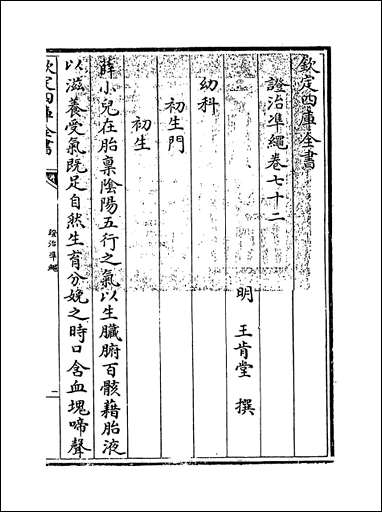 欽定四庫全書
證治準繩卷七十二
明 王肯堂 撰
幼科
初生門
初生
薛小兒在胎稟陰陽五行之氣以生臟腑百骸藉胎液
以滋養受氣既足自然生育分娩之時口含血塊啼聲
欽定四庫全書
證治準繩